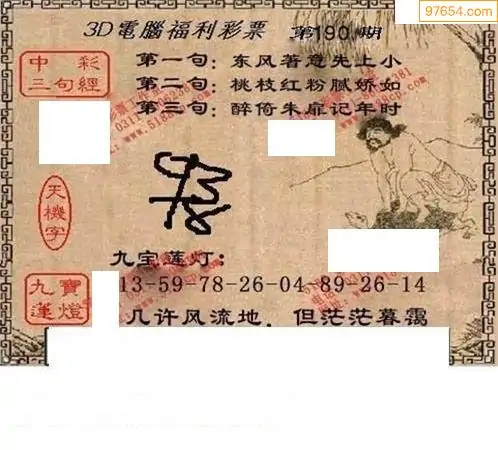 97654.com
3D電腦福利彩票 第190期
中彩
三句經
第一句：东风著意先上小
第二句：桃枝红粉腻娇如
第三句：醉倚朱扉记年时
天機字
九宝莲灯：
九寶蓮燈
13-59-78-26-04 89-26-14
几许风流地，但茫茫暮霭